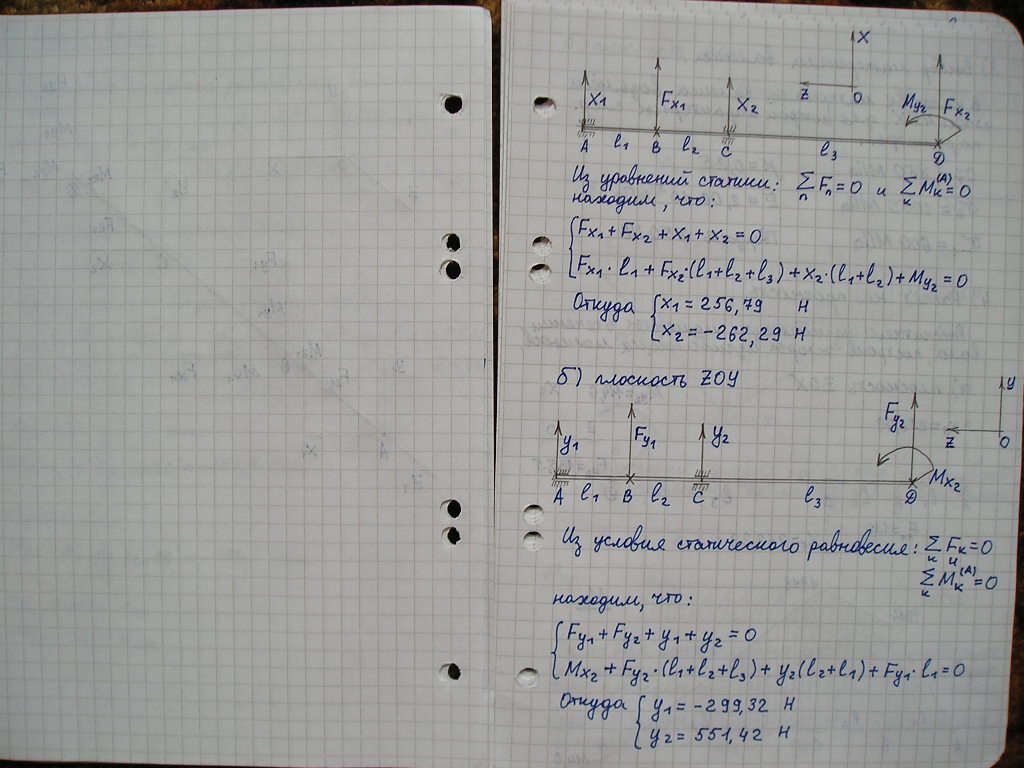 X
Z
O
X1
Fx1
X2
My2
Fx2
A l1 B l2 C l3 D
Из уравнений статики: ∑n Fn=0 и ∑k Mk(A)=0
находим, что:
Fx1+Fx2+X1+X2=0
Fx1·l1+Fx2·(l1+l2+l3)+X2·(l1+l2)+My2=0
Откуда
X1=256,79 Н
X2=-262,29 Н
б) плоскость ZOY
y
Z
O
y1
Fy1
y2
Fy2
Mx2
A l1 B l2 C l3 D
Из условия статического равновесия: ∑k Fk=0
и
∑k Mk(A)=0
находим, что:
Fy1+Fy2+y1+y2=0
Mx2+Fy2·(l1+l2+l3)+y2(l2+l1)+Fy1·l1=0
Откуда
y1=-299,32 Н
y2=551,42 Н